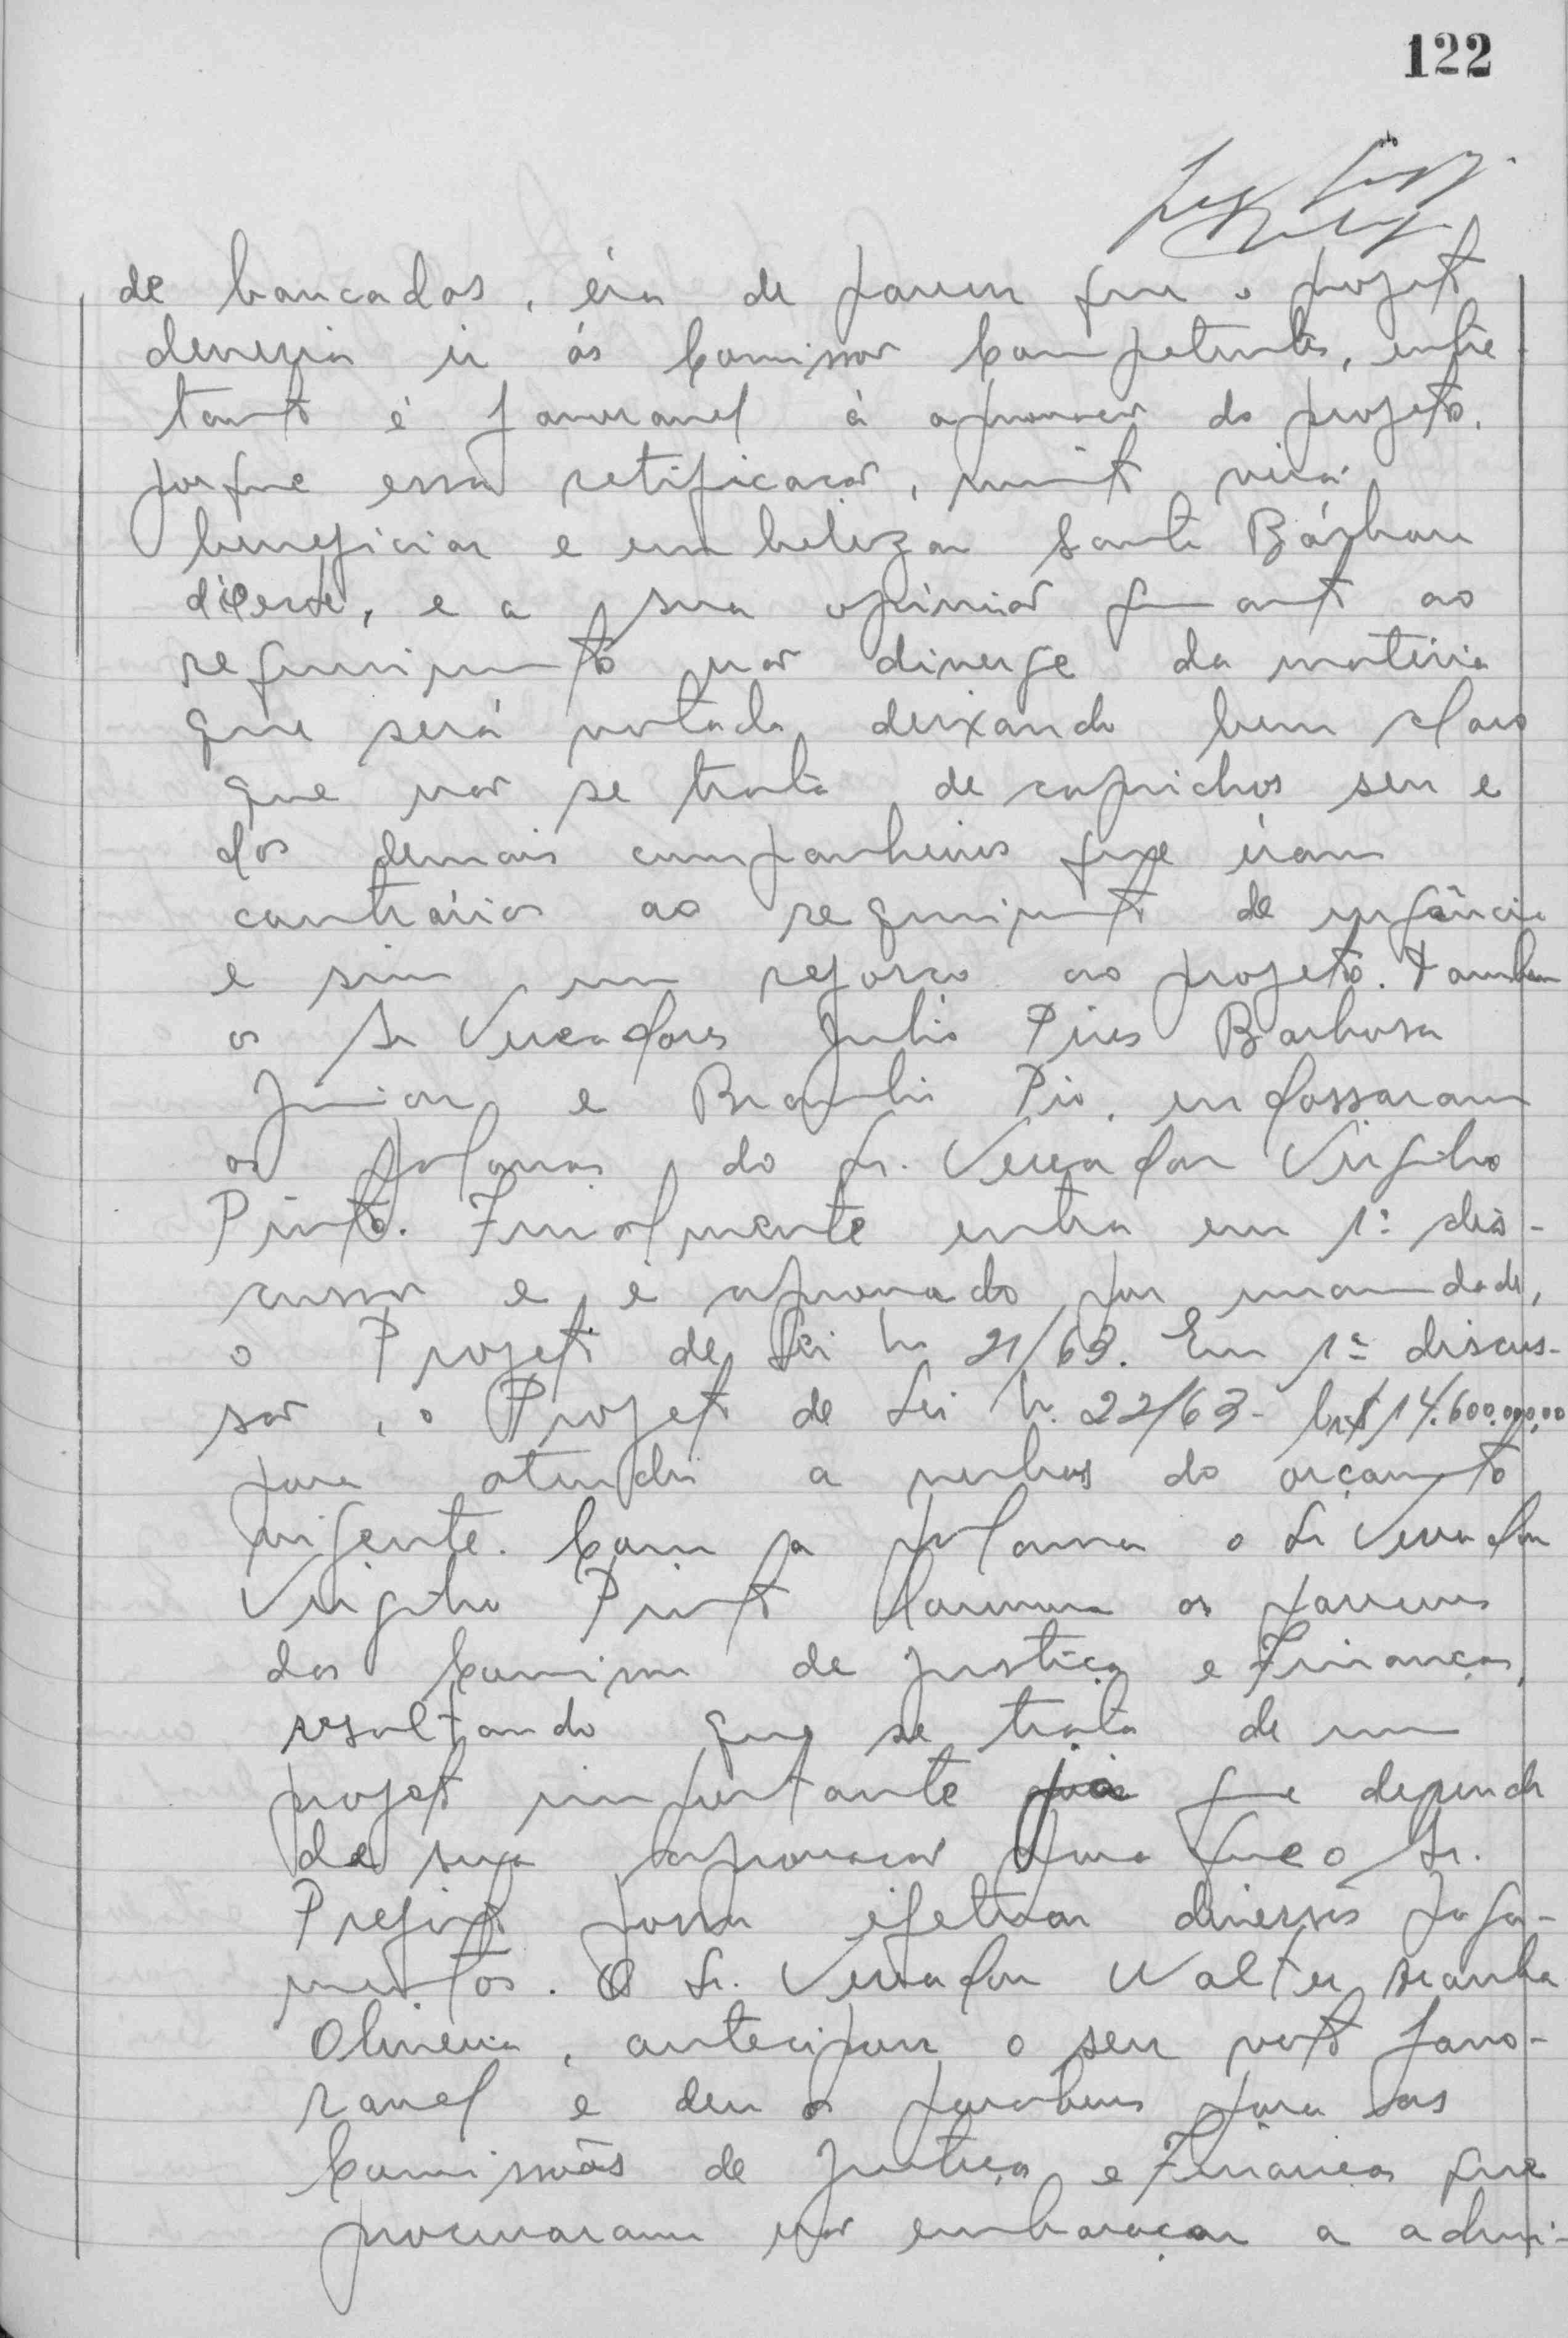 122
de bancadas, éra de parecer que o projeto
deveria ir ás Comissões Competentes, entre-
tanto é favoravel á aprovação do projeto,
porque essa retificação, muito virá
beneficiar e embelezar Santa Bárbara
d'Oeste, e a sua opinião quanto ao
requerimento não diverge da matéria
que será votada deixando bem claro
que não se trata de caprichos seu e
dos demais companheiros que éram
contrários ao requerimento de urgência
e sim um reforço ao projeto. Tambem
os Sr Vereadores Julio Pires Barbosa
Junior e Braulio Pio, endossaram
as palavras do Sr. Vereador Virgilio
Pinto. Finalmente entra em 1ª dis-
cussão e é aprovado por unanimidade,
o Projeto de Lei nº 21/63. Em 1ª discus-
são, o Projeto de Lei nº 22/63 - Cr$ 14.600.000,00
para atender a verbas do orçamento
vigente. Com a palavra o Sr Vereador
Virgilio Pinto louvou os pareceres
das Comissões de Justiça e Finanças,
resaltando que se trata de um
projeto importante que depende
de sua aprovação para que o Sr.
Prefeito possa efetuar diversos paga-
mentos. O Sr. Vereador Walter
Oliveira, antecipou o seu voto favo-
ravel e deu os parabens para as
Comissões de Justiça e Finanças que
procuraram não embaraçar a admi-